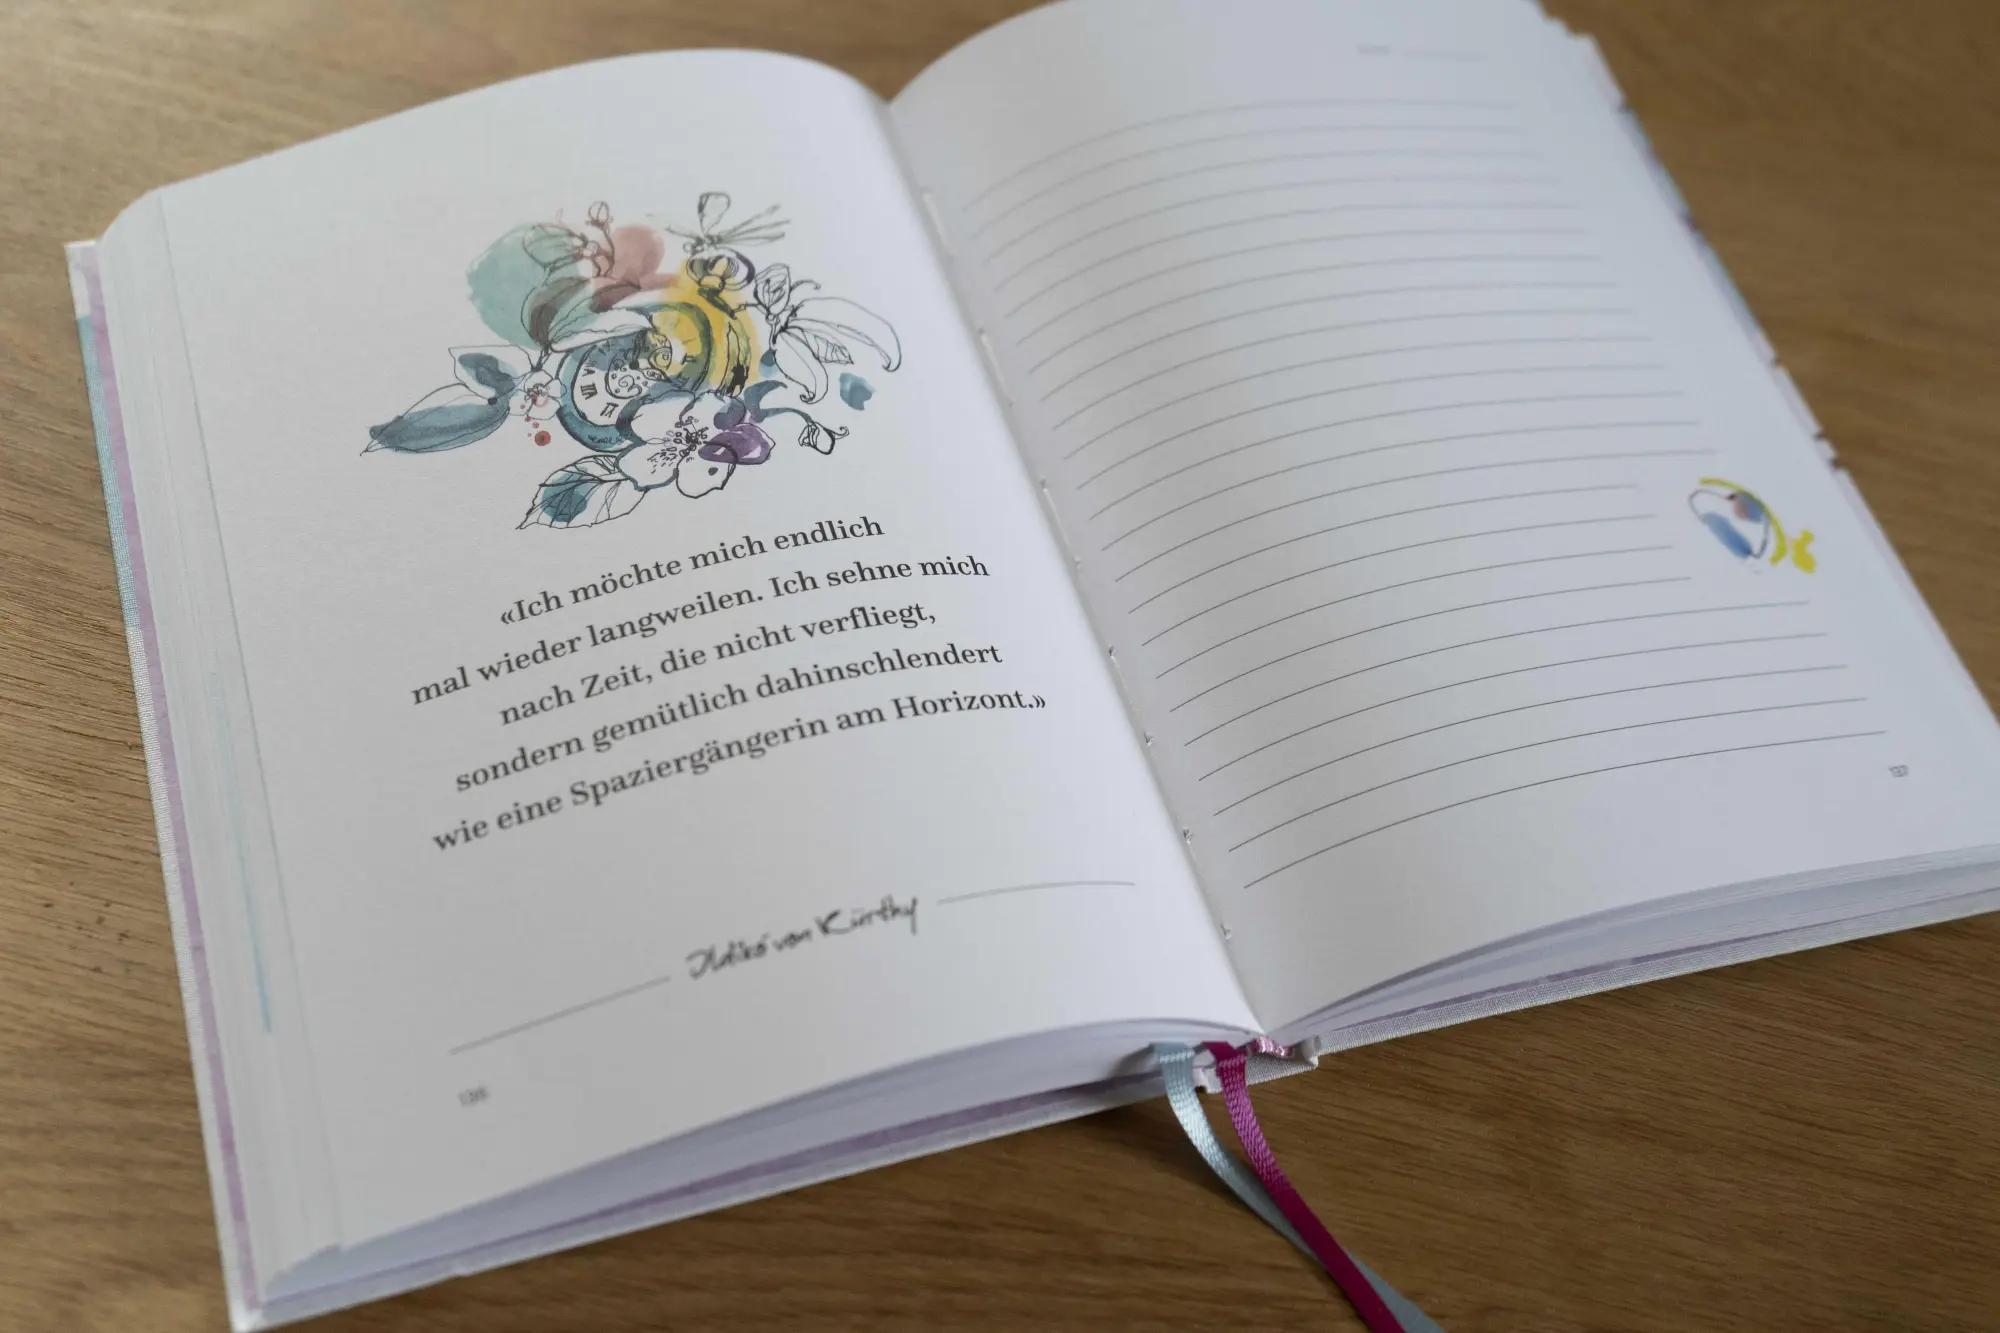 «Ich möchte mich endlich
mal wieder langweilen. Ich sehne mich
nach Zeit, die nicht verfliegt,
sondern gemütlich dahinschlendert
wie eine Spaziergängerin am Horizont.»
Ildikó von Kürthy
136
137